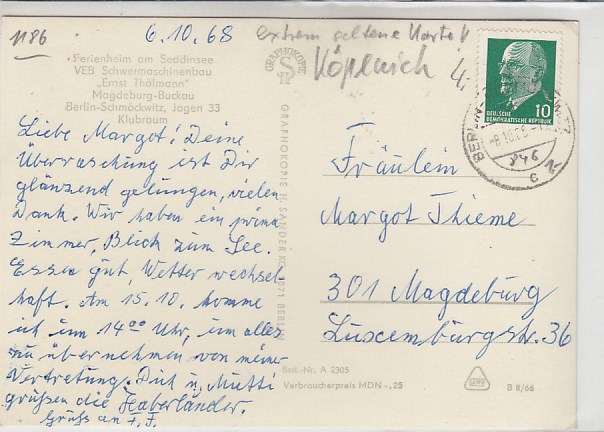 1186
6.10.68
extrem seltene Karte!
Köpenick
Ferienheim am Seddinsee
VEB Schwermaschinenbau
„Ernst Thälmann"
Magdeburg-Buckau
Berlin-Schmöckwitz, Jagen 33
Klubraum
Liebe Margot! Deine
Überraschung ist Dir
glänzend gelungen, vielen
Dank. Wir haben ein prima
Zimmer, Blick zum See.
Essen gut, Wetter wechsel-
haft. Am 15.10. komme
ich um 14⁰⁰ Uhr, um alles
zu übernehmen von meiner
Vertretung. Dich u. Mutti
grüßen die Haberländer.
Gruß an F. F.
GRAPHOKOPIE
GRAPHOKOPIE H. SANDER KG 1071 BERLIN
DEUTSCHE
DEMOKRATISCHE REPUBLIK
10
BERLIN
846
c
Fräulein
Margot Thieme
301 Magdeburg
Luxemburgstr. 36
Best.-Nr. A 2305
Verbraucherpreis MDN -,25
B 8/66